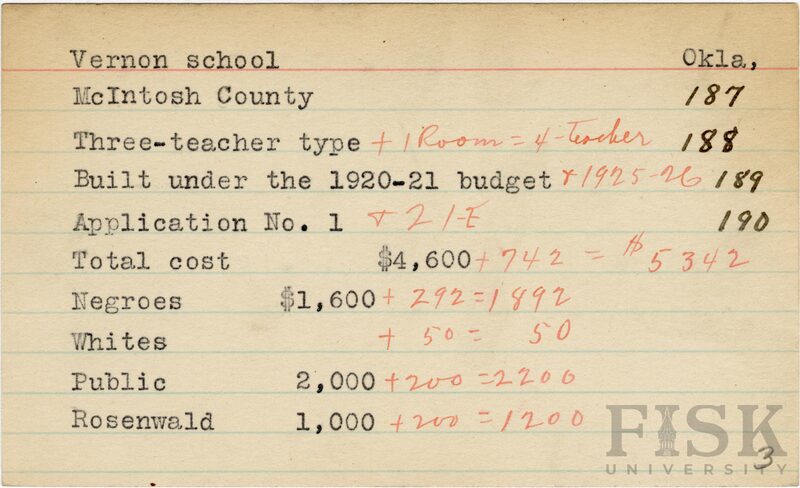 Vernon school Okla,
McIntosh County 187
Three-teacher type + 1 Room = 4-Teacher 188
Built under the 1920-21 budget + 1925-26 189
Application No. 1 + 21-E 190
Total cost $4,600 + 742 = $5342
Negroes $1,600 + 292 = 1892
Whites + 50 = 50
Public 2,000 + 200 = 2200
Rosenwald 1,000 + 200 = 1200
FISK
UNIVERSITY
3